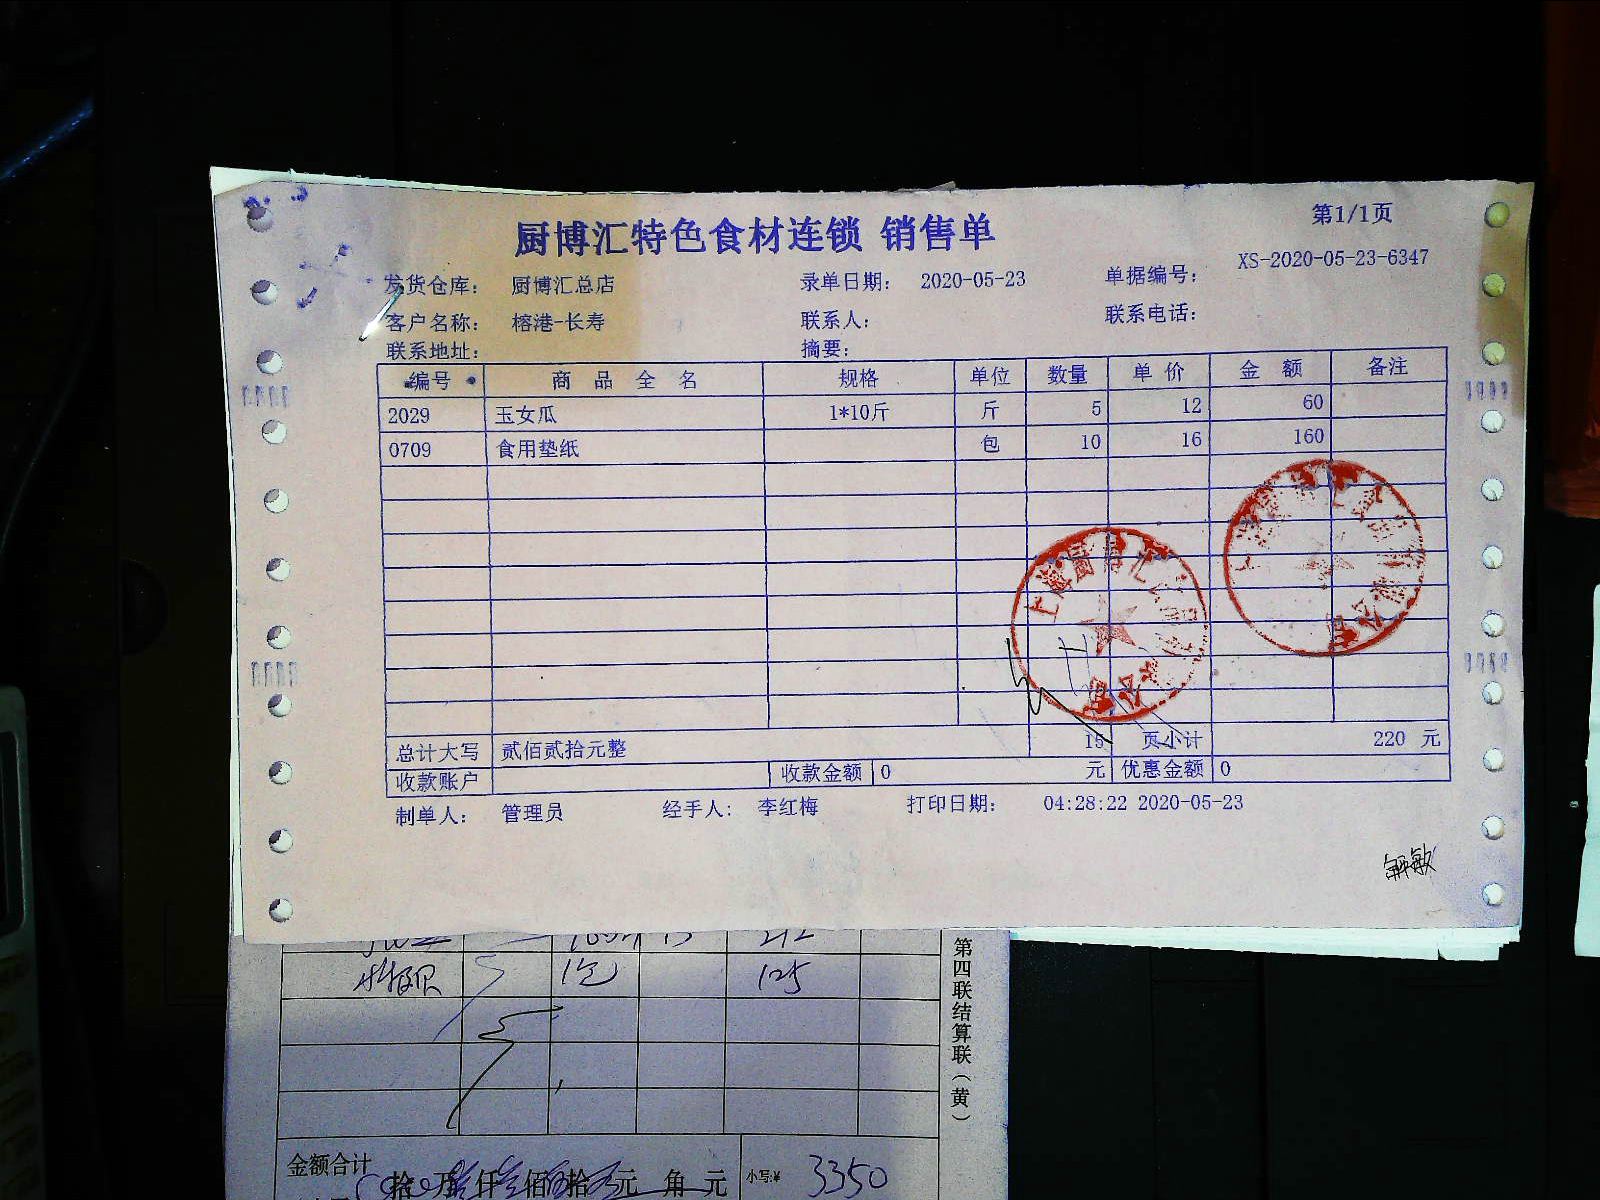 第1/1页
厨博汇特色食材连锁 销售单
发货仓库： 厨博汇总店 录单日期： 2020-05-23 单据编号： XS-2020-05-23-6347
客户名称： 榕港-长寿 联系人： 联系电话：
联系地址： 摘要：
编号 商品全名 规格 单位 数量 单价 金额 备注
2029 玉女瓜 1*10斤 斤 5 12 60
0709 食用垫纸 包 10 16 160
上海厨博汇 公司
总计大写 贰佰贰拾元整 15 页小计 220 元
收款账户 收款金额 0 元 优惠金额 0
制单人： 管理员 经手人： 李红梅 打印日期： 04:28:22 2020-05-23
1包 125
第四联结算联（黄）
金额合计 拾 万 仟 佰 拾 元 角 元 小写:¥ 3350